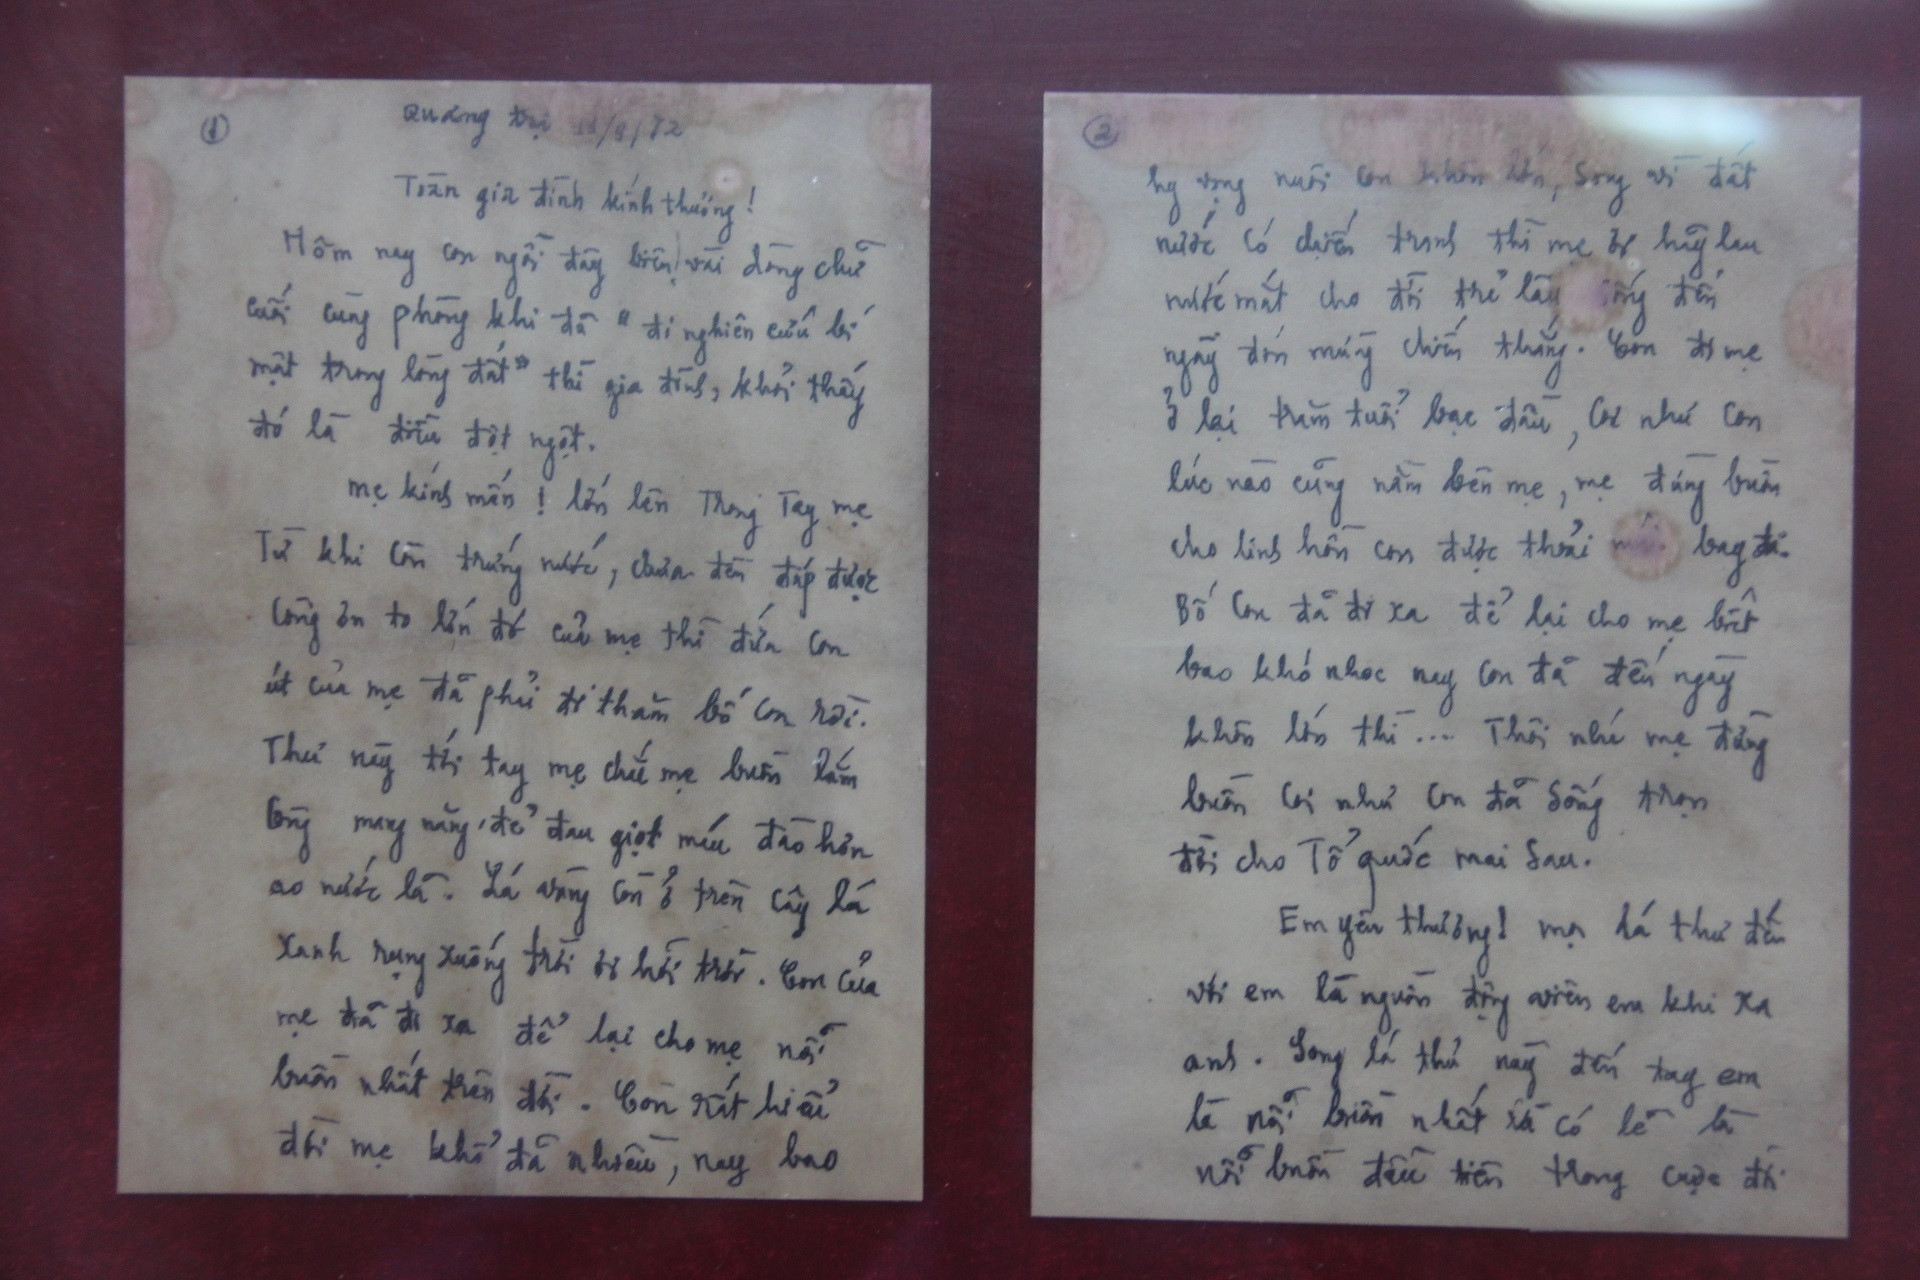 1
Quảng trị 11/9/72
Toàn gia đình kính thương!
Hôm nay con ngồi đây biên vài dòng chữ
cuối cùng phòng khi đã "đi nghiên cứu bí
mật trong lòng đất" thì gia đình, khỏi thấy
đó là điều đột ngột.
mẹ kính mến! lớn lên Trong Tay mẹ
Từ khi còn trứng nước, chưa đền đáp được
công ơn to lớn đó của mẹ thì đứa con
út của mẹ đã phải đi thăm bố con rồi.
Thư này tới tay mẹ chắc mẹ buồn lắm
lòng mang nặng đẻ đau giọt máu đào hơn
ao nước lã. Lá vàng còn ở trên cây lá
xanh rụng xuống trời ơi hỡi trời. Con của
mẹ đã đi xa để lại cho mẹ nỗi
buồn nhất trên đời. Con rất hiểu
đời mẹ khổ đã nhiều, nay bao
2
hy vọng nuôi con khôn lớn, Song vì đất
nước có chiến tranh thì mẹ ơi hãy lau
nước mắt cho đời trẻ lâu sống đến
ngày đón mừng chiến thắng. Con đi mẹ
ở lại trăm tuổi bạc đầu, coi như con
lúc nào cũng nằm bên mẹ, mẹ đừng buồn
cho linh hồn con được thoải mái bay đi.
Bố con đã đi xa để lại cho mẹ biết
bao khó nhọc nay con đã đến ngày
khôn lớn thì .... Thôi nhé mẹ đừng
buồn coi như con đã sống trọn
đời cho Tổ quốc mai sau.
Em yêu thương! mọi lá thư đến
với em là nguồn động viên em khi xa
anh. Song lá thư này đến tay em
là nỗi buồn nhất và có lẽ là
nỗi buồn đầu tiên trong cuộc đời